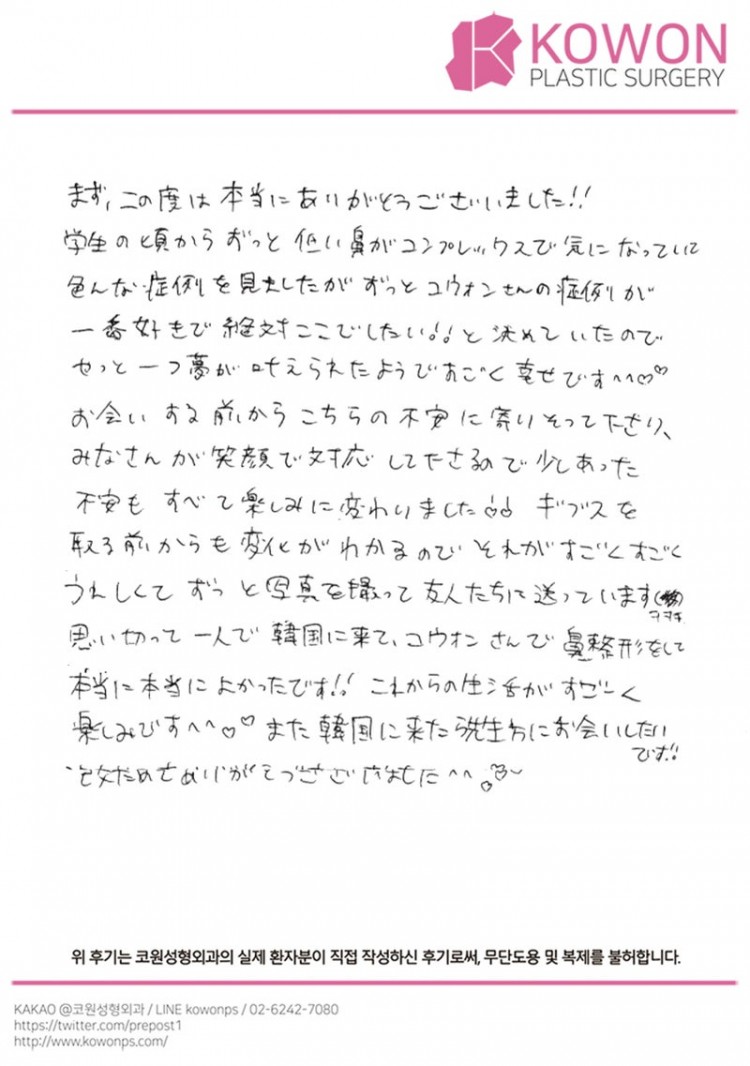 KOWON
PLASTIC SURGERY
まず、この度は本当にありがとうございました!!
学生の頃からずっと低い鼻がコンプレックスで気になっていて
色んな症例を見ましたがずっとコウォンさんの症例が
一番好きで絶対ここでしたい!!と決めていたので
やっと一つ夢が叶えられたようですごく幸せです^^♡♡
お会いする前からこちらの不安に寄りそって下さり、
みなさんが笑顔で対応して下さるので少しあった
不安もすべて楽しみに変わりました ギブスを
取る前からも変化がわかるのでそれがすごくすごく
うれしくてずっと写真を撮って友人たちに送っています
ㅋㅋㅋ
思い切って一人で韓国に来て、コウォンさんで鼻整形をして
本当に本当によかったです!! これからの生活がすごーく
楽しみです^^♡♡ また韓国に来たら先生方にお会いしたい
です!!
ありがとうございました^^
위 후기는 코원성형외과의 실제 환자분이 직접 작성하신 후기로써, 무단도용 및 복제를 불허합니다.
KAKAO @코원성형외과 / LINE kowonps / 02-6242-7080
https://twitter.com/prepost1
http://www.kowonps.com/